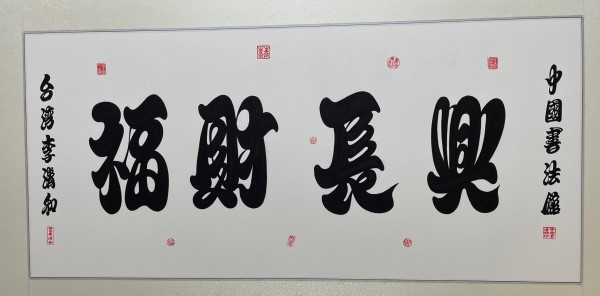 中國書法館
福財長興
台灣李和